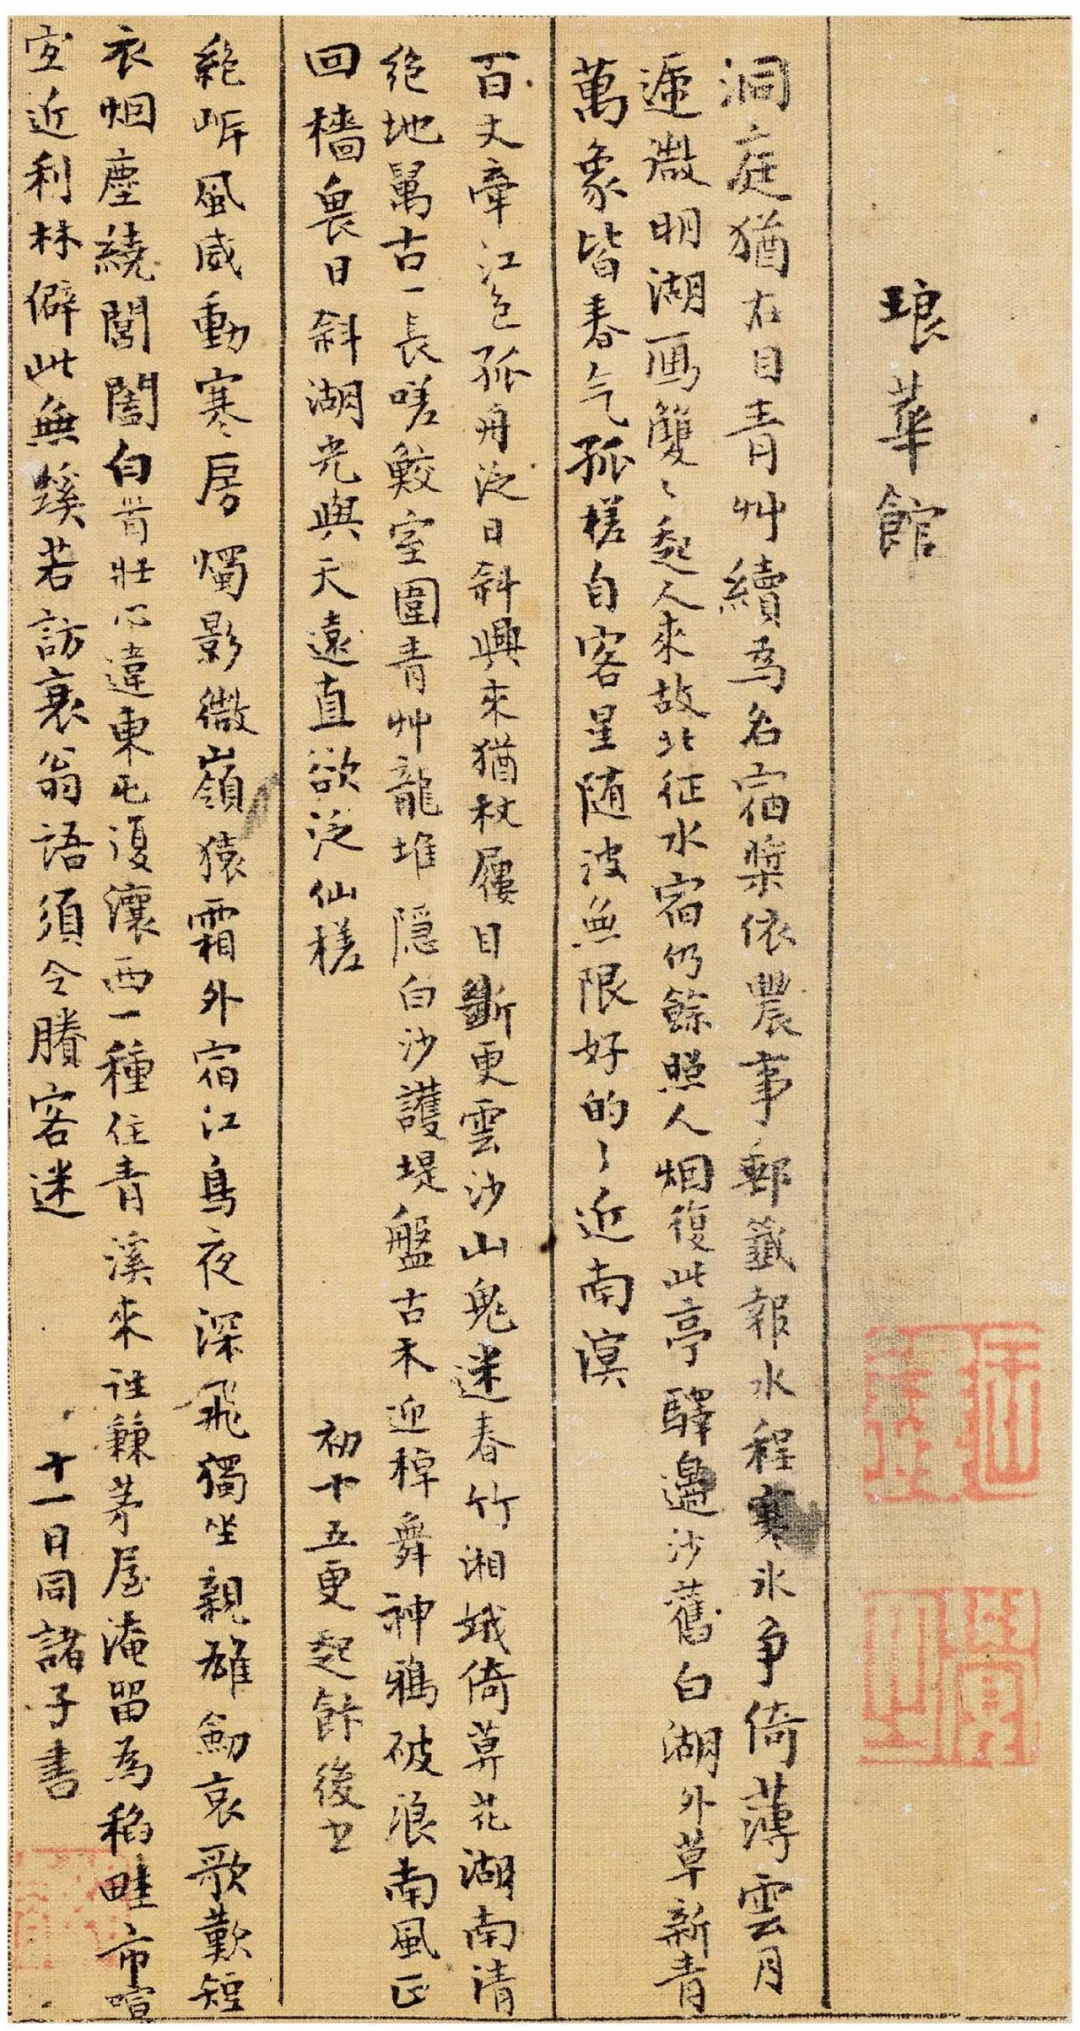 琅華館
洞庭猶在目青艸續為名宿槳依農事郵籤報水程寒冰爭倚薄雲月
遞微明湖雁雙〻起人來故北征水宿仍餘照人烟復此亭驛邊沙舊白湖外草新青
萬象皆春气孤槎自客星随波無限好的〻近南溟
百丈牽江色孤舟泛日斜興來猶杖屨目斷更雲沙山鬼迷春竹湘娥倚莫花湖南清
絶地萬古一長嗟鮫室圍青艸龍堆隱白沙護堤盤古木迎棹舞神鴉破浪南風正
回檣畏日斜湖光與天遠直欲泛仙槎
初十五更起餘後书
絶岸風威動寒房燭影微嶺猿霜外宿江鳥夜深飛獨坐親雄劒哀歌歎短
衣烟塵繞閶闔白首壯心違東屯復瀼西一種住青溪來往兼茅屋淹留為稻畦市喧
宜近利林僻此無蹊若訪衰翁語須令賸客迷
十一日同諸子書